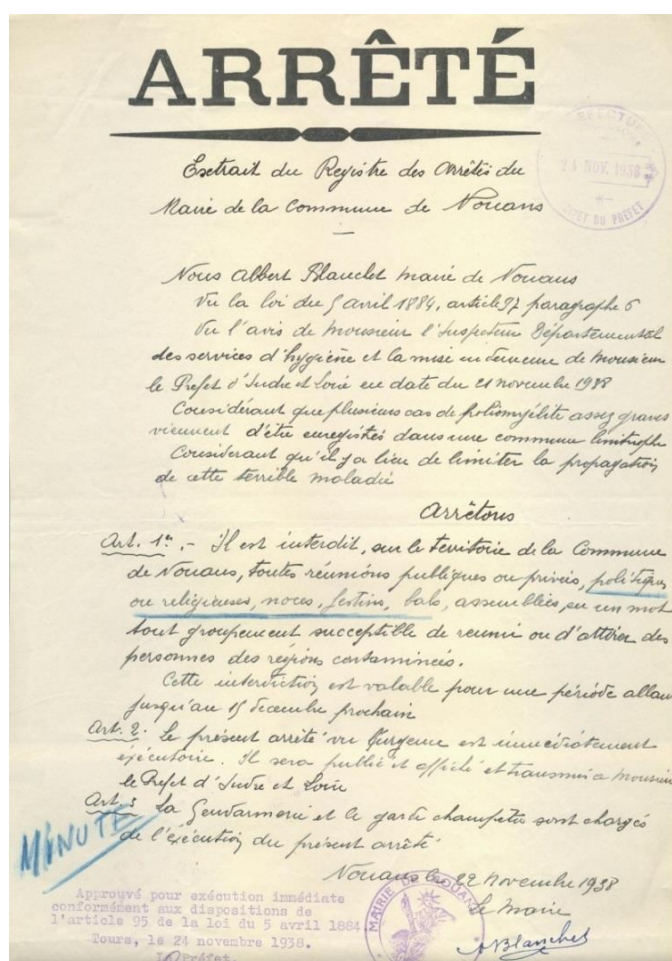 ARRÊTÉ
Extrait du Registre des Arrêtés du
Maire de la Commune de Nouans
PREFECTURE
24 NOV. 1938
DU PRÉFET
Nous Albert Blanchet maire de Nouans
Vu la loi du 5 avril 1884, article 97 paragraphe 6
Vu l'avis de Monsieur l'Inspecteur Départemental
des services d'hygiène et la mise en demeure de Monsieur
le Préfet d'Indre et Loire en date du 21 novembre 1938
Considérant que plusieurs cas de poliomyélite assez graves
viennent d'être enregistrés dans une commune limitrophe
Considérant qu'il y a lieu de limiter la propagation
de cette terrible maladie
Arrêtons
Art. 1er. - Il est interdit, sur le territoire de la Commune
de Nouans, toutes réunions publiques ou privées, politiques
ou religieuses, noces, festins, bals, assemblées, en un mot
tout groupement succeptible de reunir ou d'attirer des
personnes des régions contaminées.
Cette interdiction est valable pour une période allant
jusqu'au 15 décembre prochain
Art. 2. Le présent arrêté vu l'urgence est immédiatement
éxécutoire. Il sera publié et affiché et transmis à Monsieur
le Préfet d'Indre et Loire
Art. 3 La Gendarmerie et le garde champêtre sont chargés
de l'éxécution du présent arrêté
MINUTE
Nouans le 22 Novembre 1938
Le Maire
ABlanchet
MAIRIE DE NOUANS
Approuvé pour exécution immédiate
conformément aux dispositions de
l'article 95 de la loi du 5 avril 1884
Tours, le 24 novembre 1938.
Le Préfet,